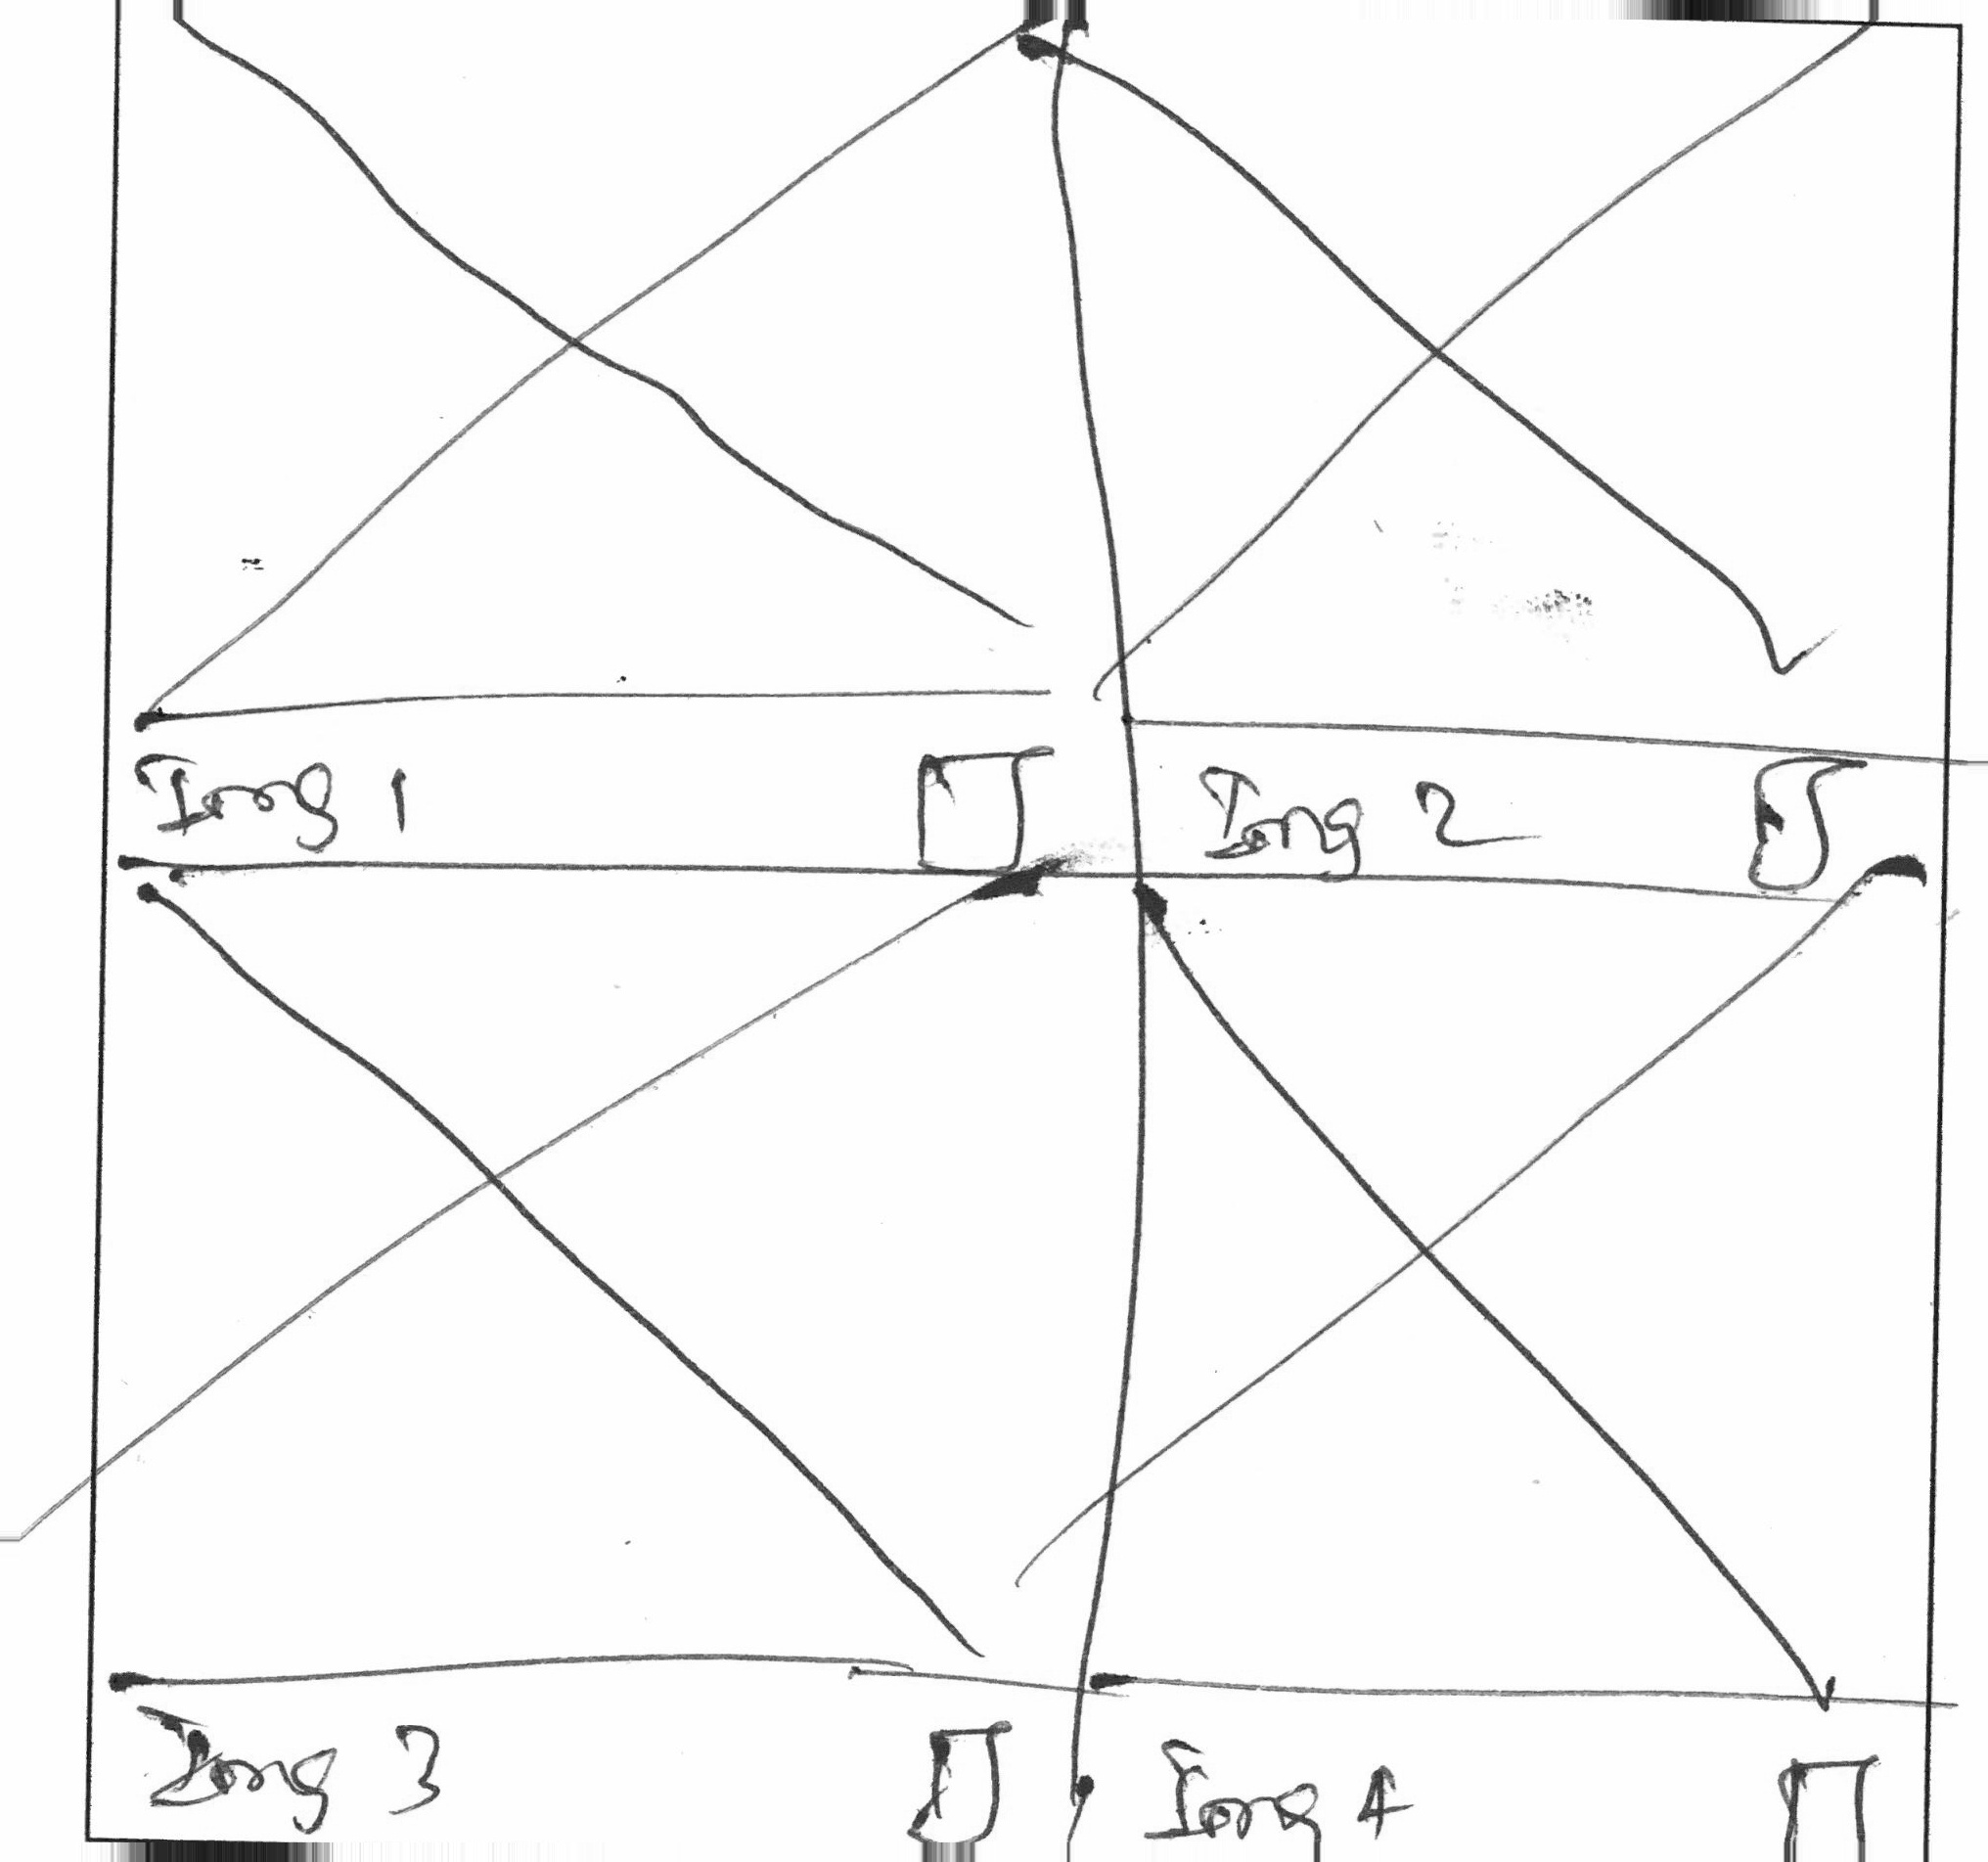 Img 1
Img 2
Img 3
Img 4